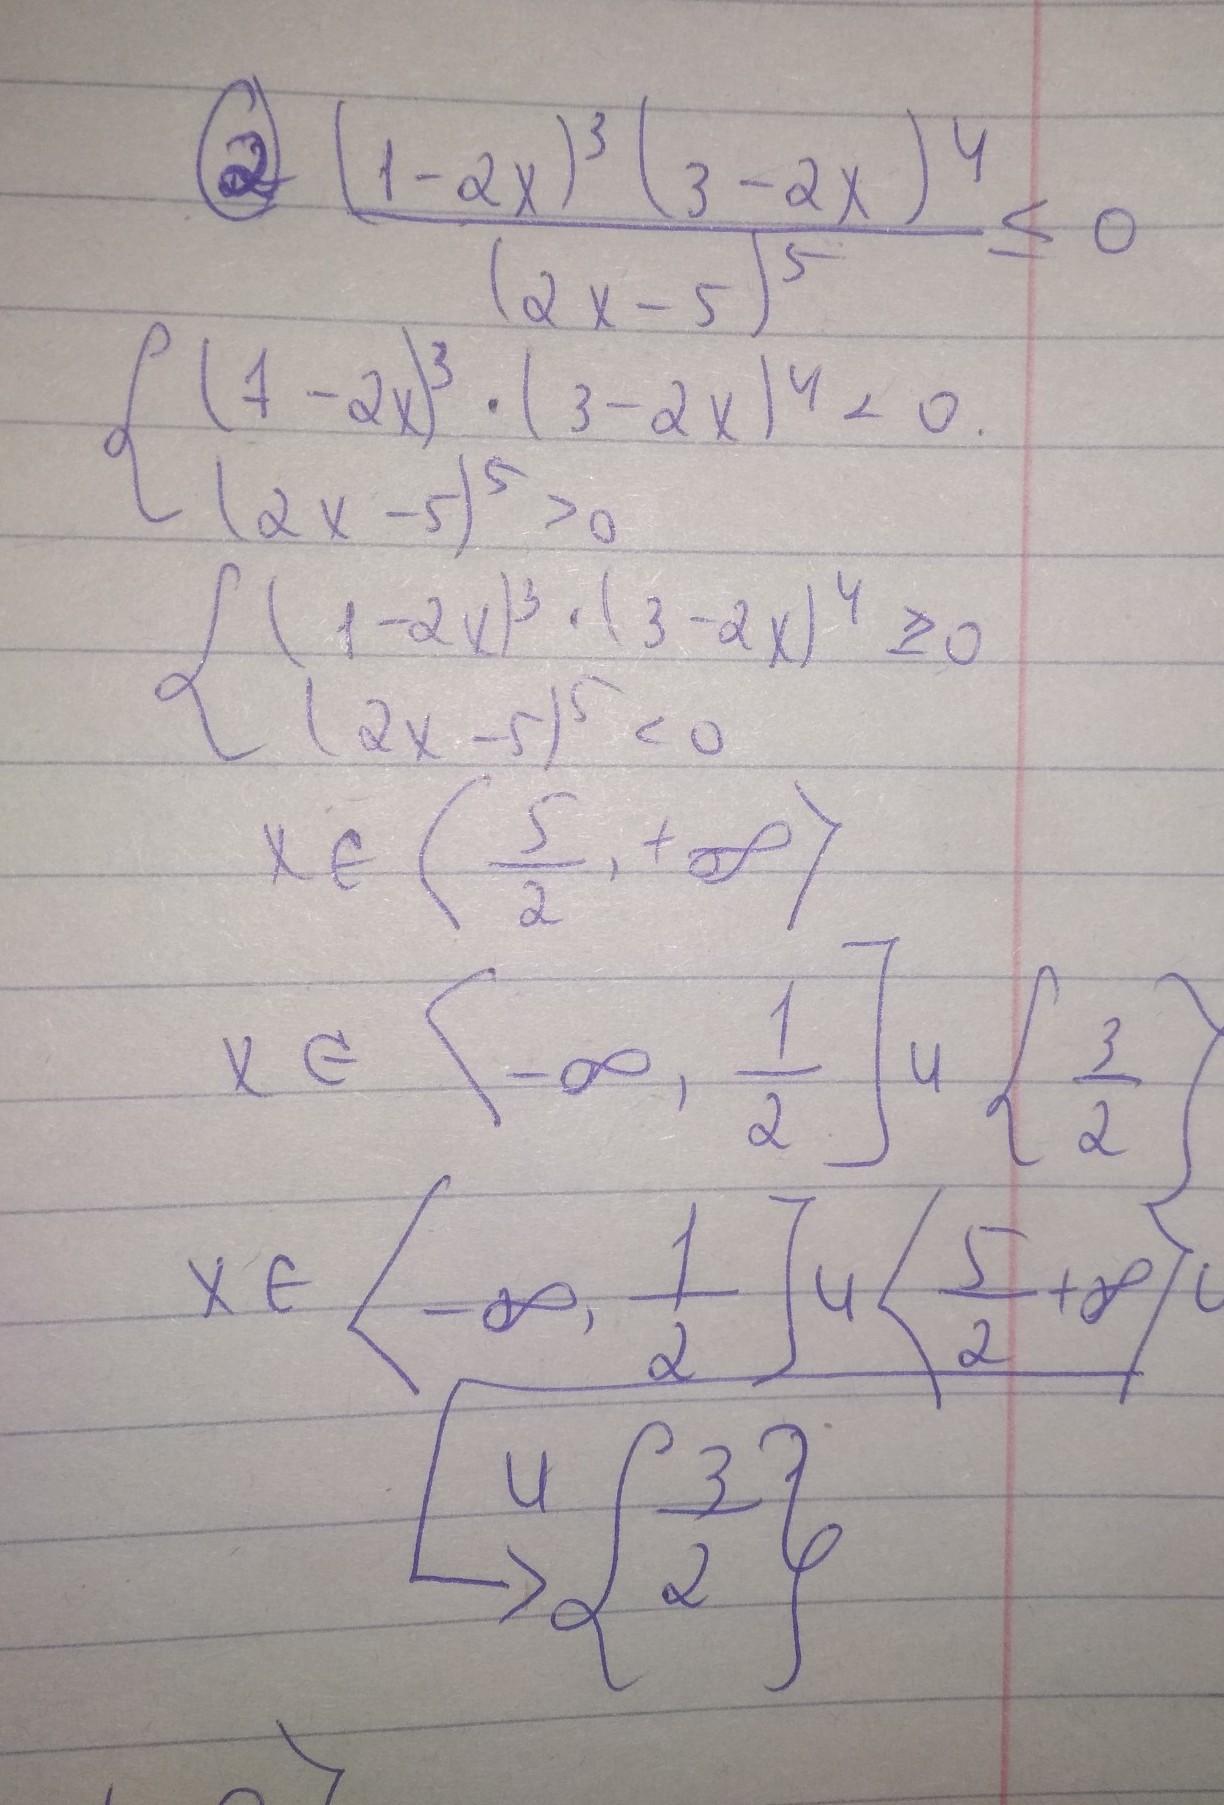 ② (1-2x)³(3-2x)⁴ / (2x-5)⁵ ≤ 0
{ (1-2x)³·(3-2x)⁴ < 0.
(2x-5)⁵ > 0
{ (1-2x)³·(3-2x)⁴ ≥ 0
(2x-5)⁵ < 0
x ∈ (5/2, +∞⟩
x ∈ ⟨-∞, 1/2] ∪ {3/2}
x ∈ ⟨-∞, 1/2] ∪ ⟨5/2 +∞⟩ ∪
→ ∪ {3/2}